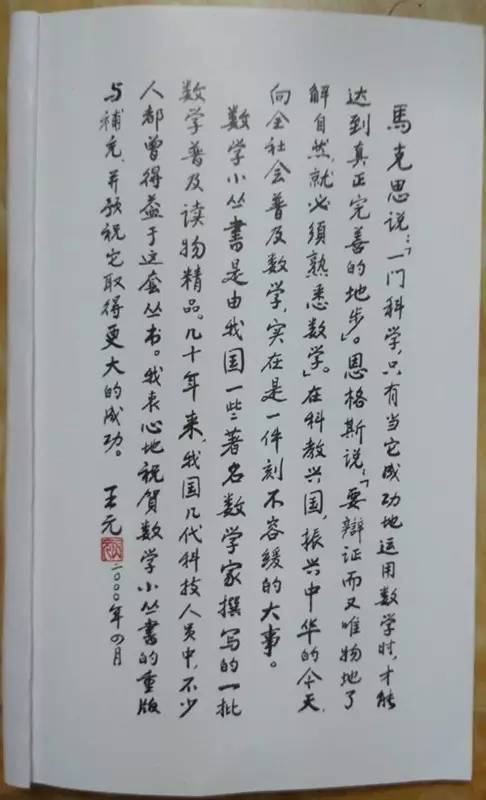 馬克思说:「一门科学,只有当它成功地运用数学时,才能
达到真正完善的地步」。恩格斯说:「要辩证而又唯物地了
解自然,就必须熟悉数学。」在科教兴国,振兴中华的今天,
向全社会普及数学,实在是一件刻不容缓的大事。
数学小丛書是由我国一些著名数学家撰写的一批
数学普及读物精品。几十年来,我国几代科技人员中,不少
人都曾得益于这套丛书。我衷心地祝贺数学小丛書的重版
与補充,并预祝它取得更大的成功。
王元
二〇〇〇年四月